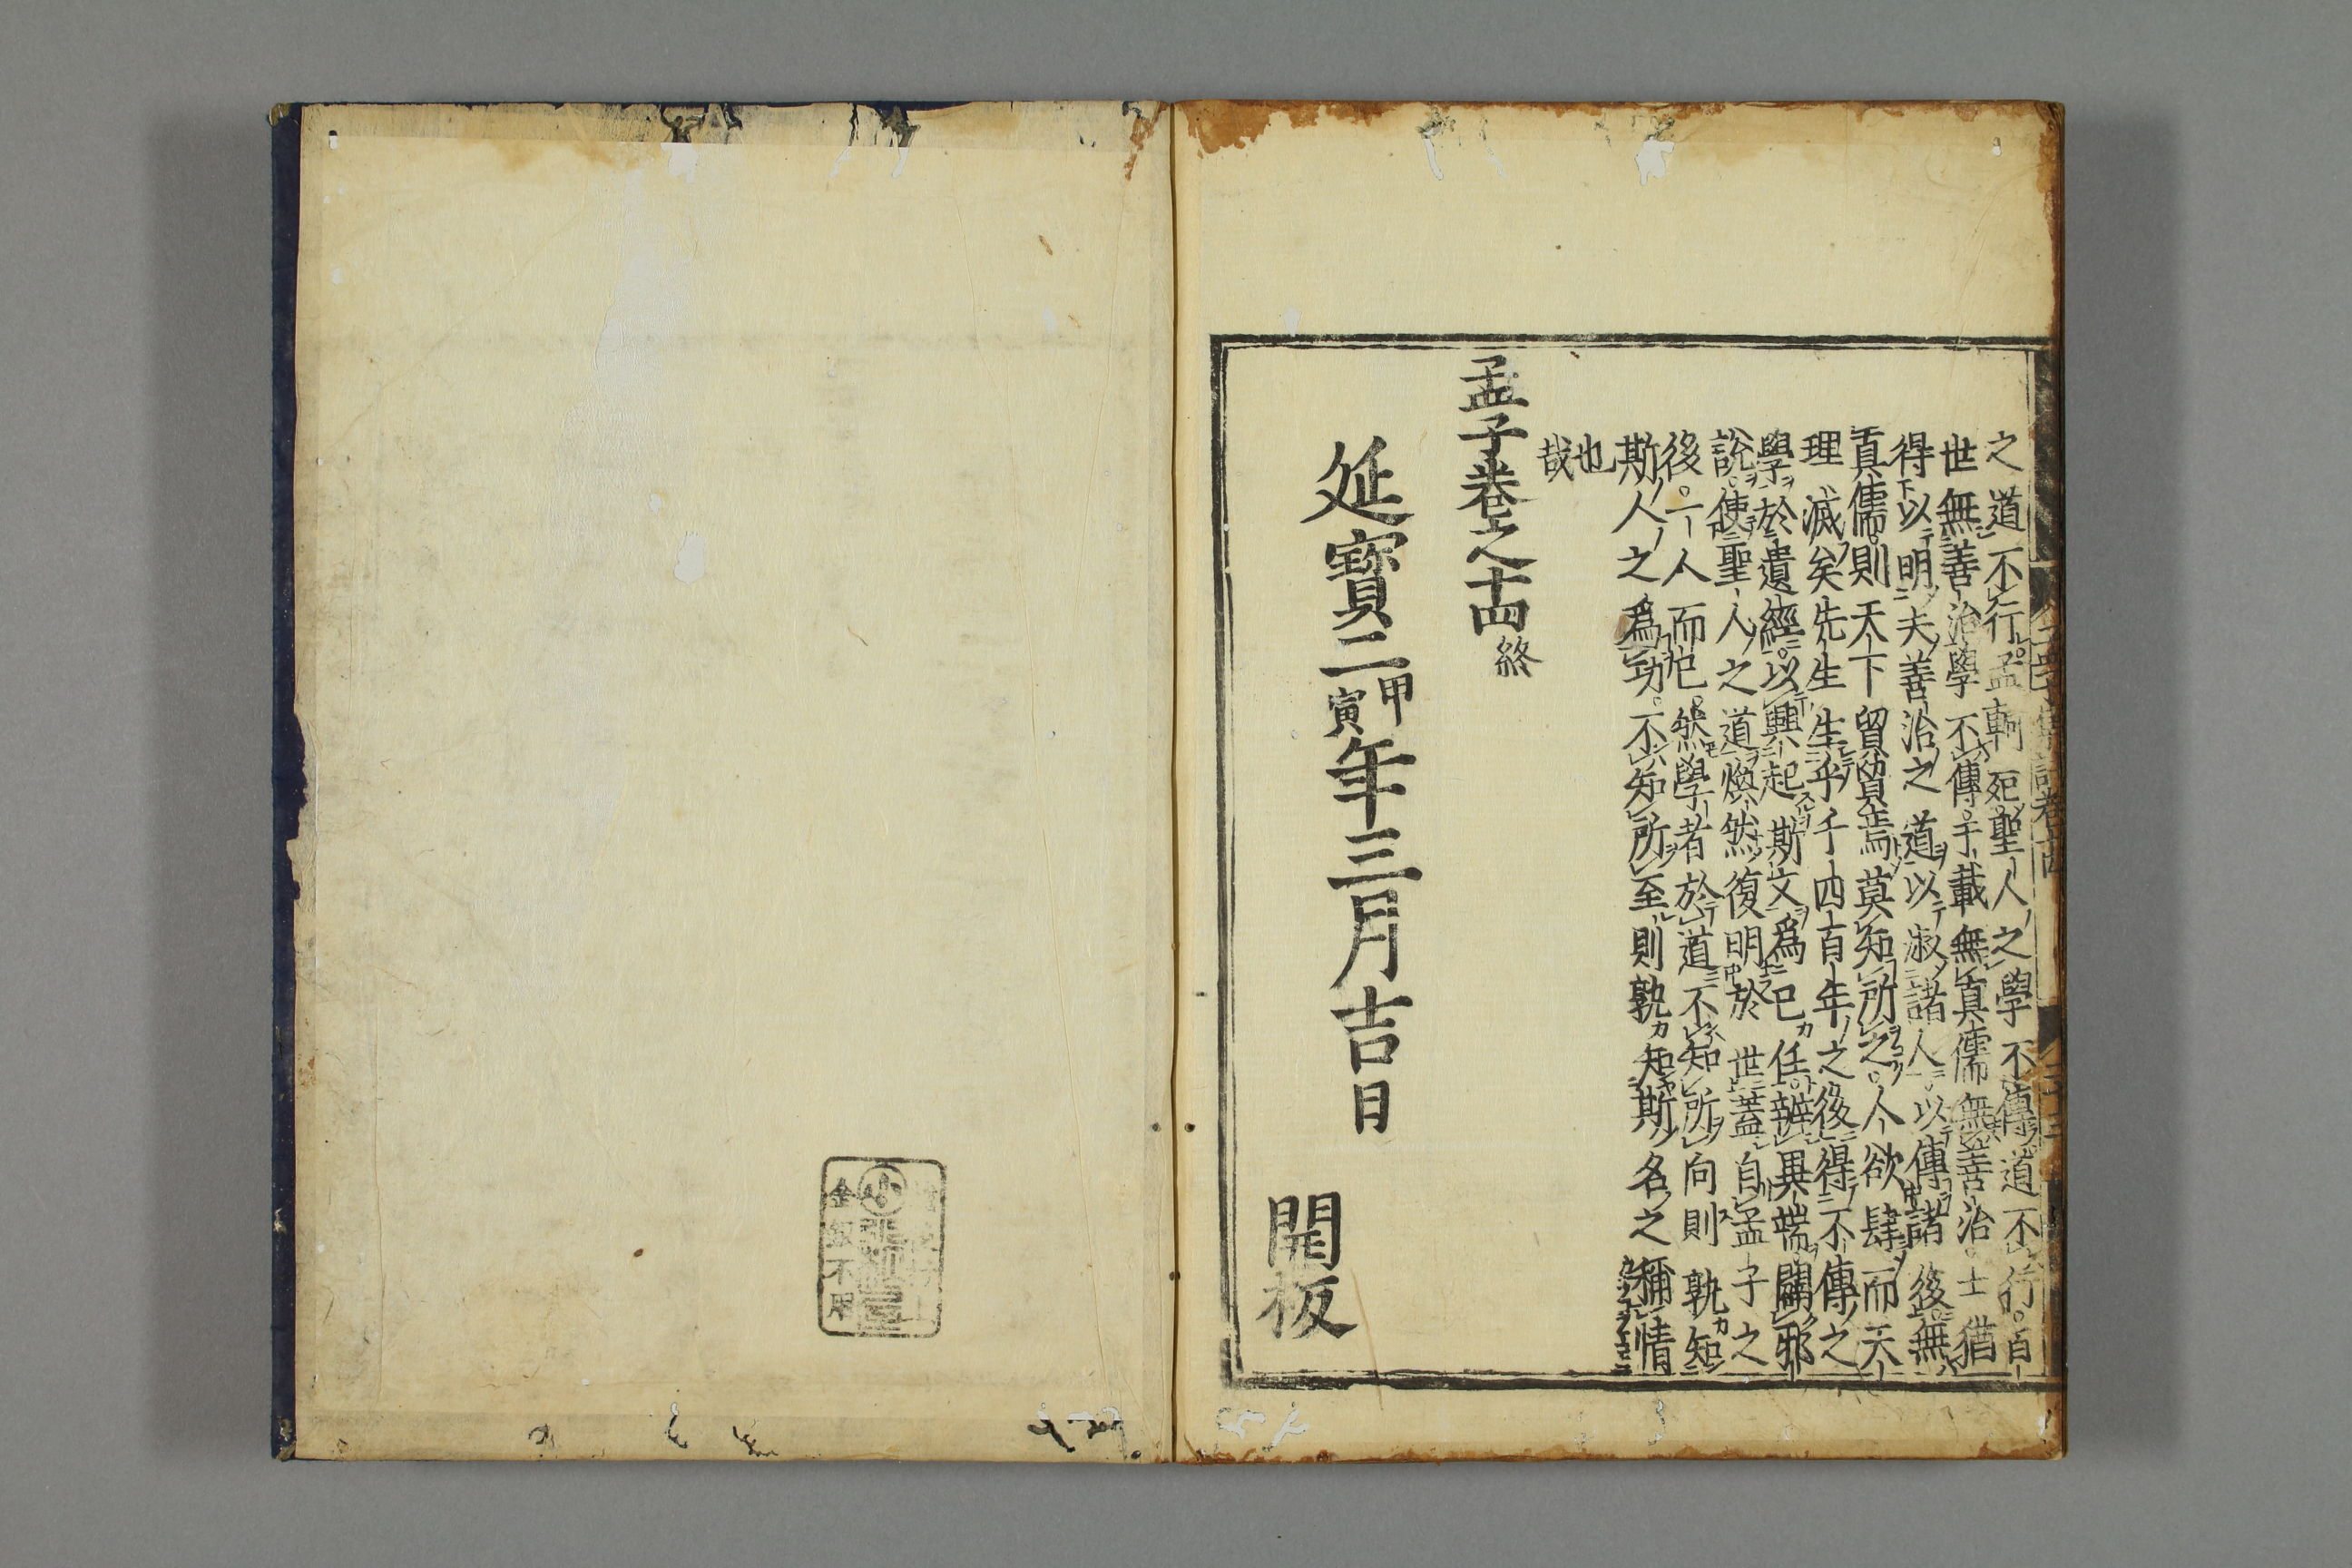 之道不行孟軻死聖人之學不傳道不行百
世無善治學不傳千載無真儒無善治士猶
得以明夫善治之道以淑諸人以傳諸後無
真儒則天下貿貿焉莫知所之人欲肆而天
理滅矣先生生乎千四百年之後得不傳之
學於遺經以興起斯文爲己任辨異端闢邪
說使聖人之道煥然復明於世蓋自孟子之
後一人而已然學者於道不知所向則孰知
斯人之爲功不知所至則孰知斯名之稱情
也
哉
孟子卷之十四終
延寶二甲寅年三月吉日
開板